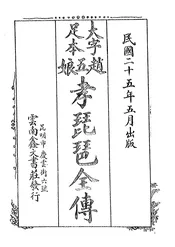 民國二十五年五月出版
大字足本
趙五娘
孝琵琶全傳
昆明市
雲南鑫文書莊發行